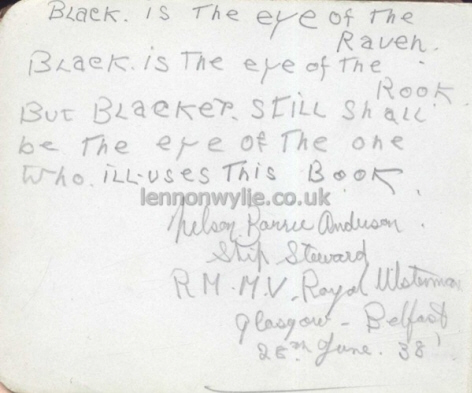 Black. is The eye of the
Raven.
Black. is The eye of the
Rook
But Blacker. Still Shall
be The eye of The one
Who. ill-uses This Book.
lennonwylie.co.uk
Nelson Barrie Anderson.
Ship Steward
R.M.M.V. Royal Ulsterman
Glasgow - Belfast
June. 38'